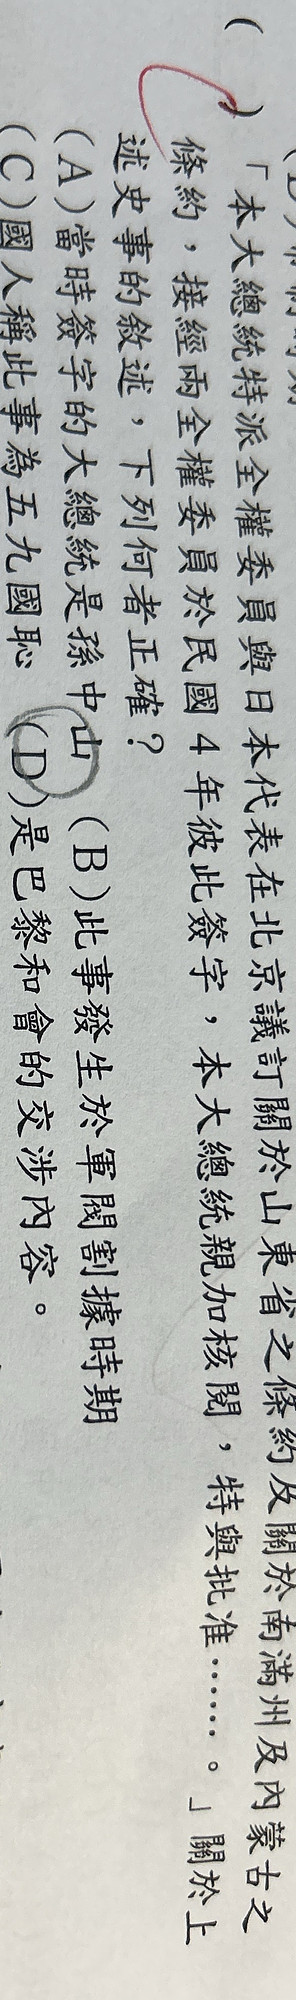 ( )「本大總統特派全權委員與日本代表在北京議訂關於山東省之條約及關於南滿州及內蒙古之
條約，接經兩全權委員於民國4年彼此簽字，本大總統親加核閱，特與批准……。」關於上
述史事的敘述，下列何者正確？
(A)當時簽字的大總統是孫中山 (B)此事發生於軍閥割據時期
(C)國人稱此事為五九國恥 (D)是巴黎和會的交涉內容。